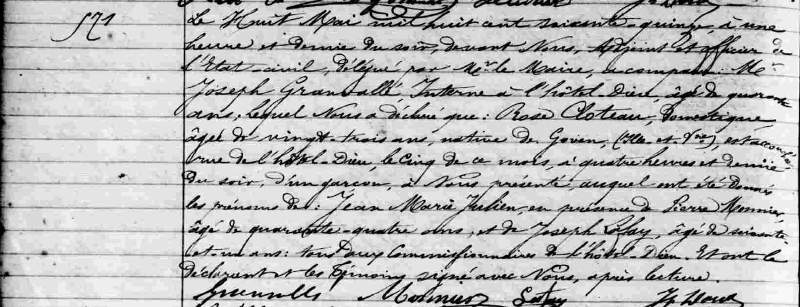 571
Le Huit Mai mil huit cent soixante-quinze, à une
heure et demie du soir, devant Nous, Adjoint et officier de
l'Etat-civil, délégué par Mr le Maire, a comparu: Mr
Joseph Granvallé, Interne à l'hôtel-Dieu, âgé de quarante
ans, lequel Nous a déclaré que: Rose Cloteau, Domestique,
âgée de vingt-trois ans, native de Goven, (Ille-et-Vne), est accouchée,
rue de l'hôtel-Dieu, le cinq de ce mois, à quatre heures et demie
du soir, d'un garçon, à Nous présenté, auquel ont été donnés
les prénoms de: Jean Marie Julien, en présence de Pierre Monnier,
âgé de quarante-quatre ans, et de Joseph Lofay, âgé de soixante
et un ans: tous deux Commissionnaires de l'hôtel-Dieu. Et ont le
déclarant et les témoins signé avec Nous, après lecture.
Monnier Lofay